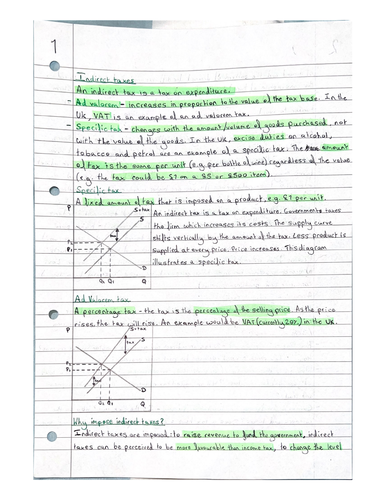 1
Indirect taxes
An indirect tax is a tax on expenditure.
- Ad valorem - increases in proportion to the value of the tax base. In the
UK, VAT is an example of an ad valorem tax.
- Specific tax - changes with the amount/volume of goods purchased, not
with the value of the goods. In the UK, excise duties on alcohol,
tobacco and petrol are an example of a specific tax. The amount
of tax is the same per unit (e.g. per bottle of wine) regardless of the value
(e.g. the tax could be $1 on a $5 or $500 item).
Specific tax
A fixed amount of tax that is imposed on a product, e.g. $1 per unit.
P
S+tax
S
An indirect tax is a tax on expenditure. Government taxes
the firm which increases its costs. The supply curve
shifts vertically by the amount of the tax. Less product is
supplied at every price. Price increases. This diagram
illustrates a specific tax.
P₁
D
Q
Ad Valorem tax
A percentage tax - the tax is the percentage of the selling price. As the price
rises, the tax will rise. An example would be VAT (currently 20%) in the UK.
P
S+tax
S
P₁
D
Q
Why impose indirect taxes?
Indirect taxes are imposed: to raise revenue to fund the government, indirect
taxes can be perceived to be more favourable than income tax, to change the level